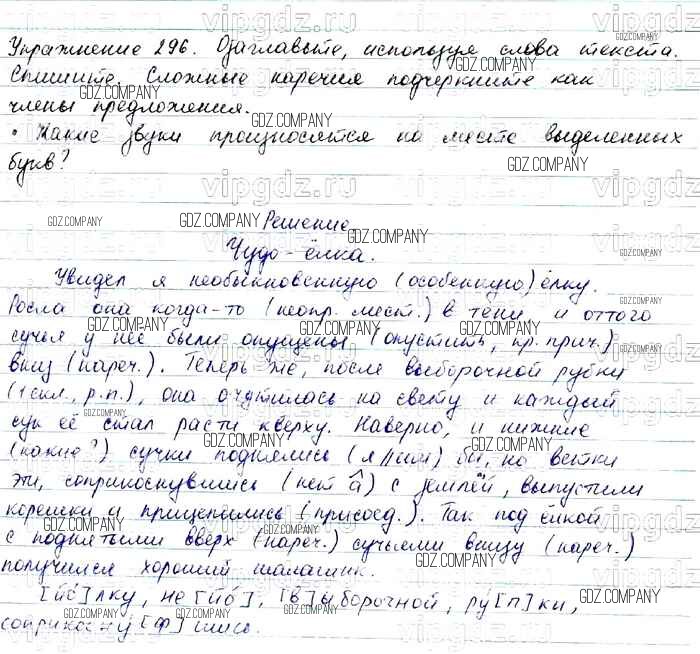 Упражнение 296. Озаглавьте, используя слова текста.
Спишите. Сложные наречия подчеркните как
члены предложения.
• Какие звуки произносятся на месте выделенных
букв?
Решение
Чудо-ёлка.
Увидел я необыкновенную (особенную) ёлку.
Росла она когда-то (неопр. мест.) в тени и оттого
сучья у неё были опущены (опустить, пр. прич.)
вниз (нареч.). Теперь же, после выборочной рубки
(1 скл., р.п.), она очутилась на свету и каждый
сук её стал расти кверху. Наверно, и нижние
(какие?) сучки поднялись (я//им) бы, но ветки
эти, соприкоснувшись (нет а) с землёй, выпустили
корешки и прицепились (присоед.). Так под ёлкой
с поднятыми вверх (нареч.) сучьями внизу (нареч.)
получился хороший шалашик.
[йо]лку, не[йо], [в]ыборочной, ру[п]ки,
соприкосну[ф]шись.
GDZ.COMPANY
vipgdz.ru